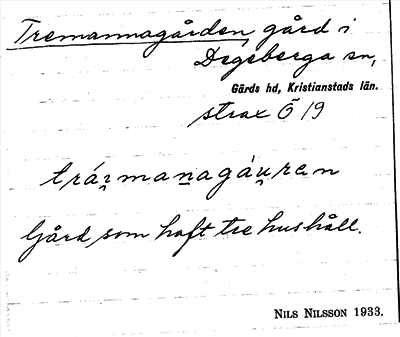 Tremannagården, gård i
Degeberga sn,
Gärds hd, Kristianstads län.
strax Ö 19
Gård som haft tre hushåll.
NILS NILSSON 1933.